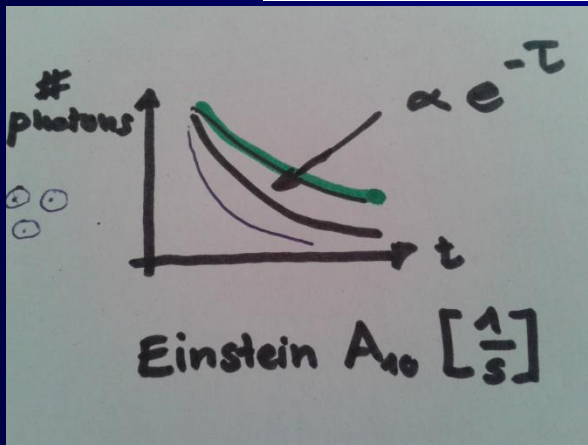 #
photons
∝ e^-τ
t
Einstein A₁₀ [1/s]